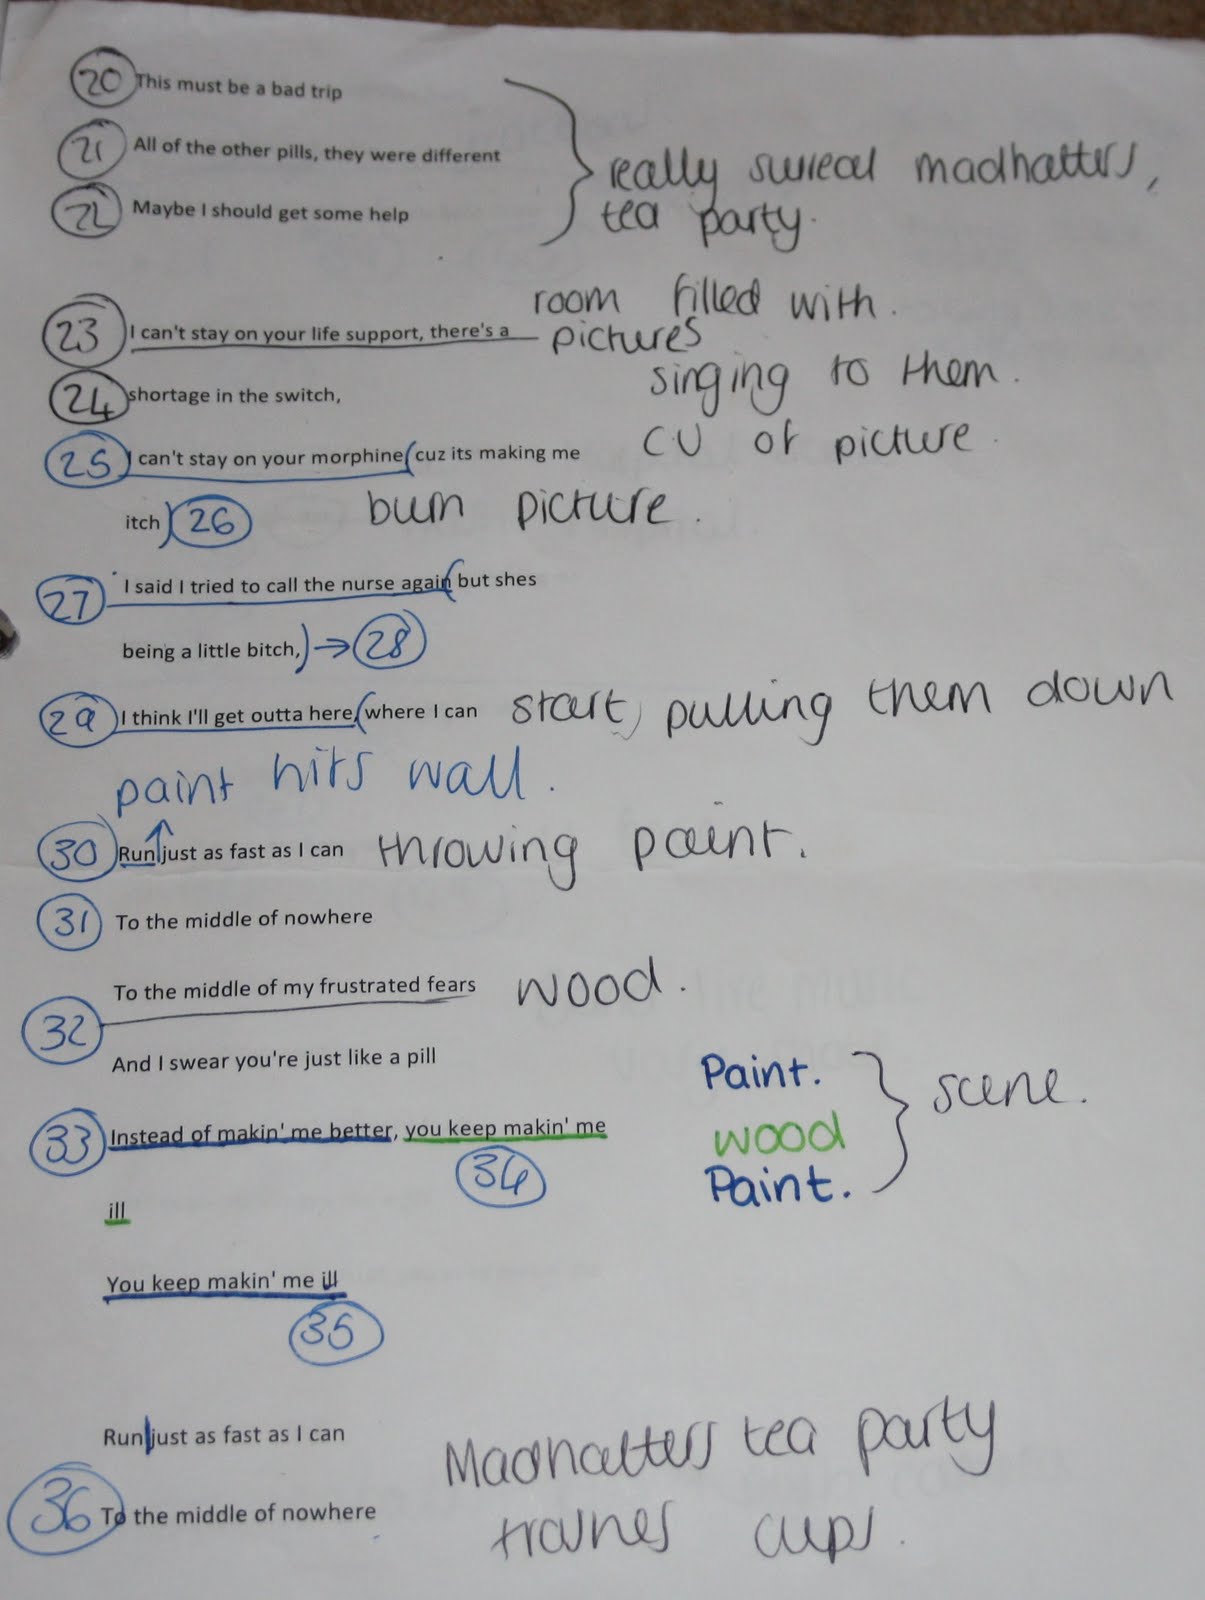 20 This must be a bad trip
21 All of the other pills, they were different
really surreal madhatters,
22 Maybe I should get some help
tea party.
room filled with.
23 I can't stay on your life support, there's a pictures
singing to them.
24 shortage in the switch,
CU of picture.
25 I can't stay on your morphine (cuz its making me
itch) 26 burn picture.
27 I said I tried to call the nurse again (but shes
being a little bitch,) → 28
29 I think I'll get outta here, (where I can start pulling them down
paint hits wall.
30 Run just as fast as I can throwing paint.
31 To the middle of nowhere
To the middle of my frustrated fears wood.
32
And I swear you're just like a pill
Paint. scene.
33 Instead of makin' me better, you keep makin' me
wood
34 Paint.
ill
You keep makin' me ill
35
Run just as fast as I can
Madhatters tea party
36 To the middle of nowhere
cups.